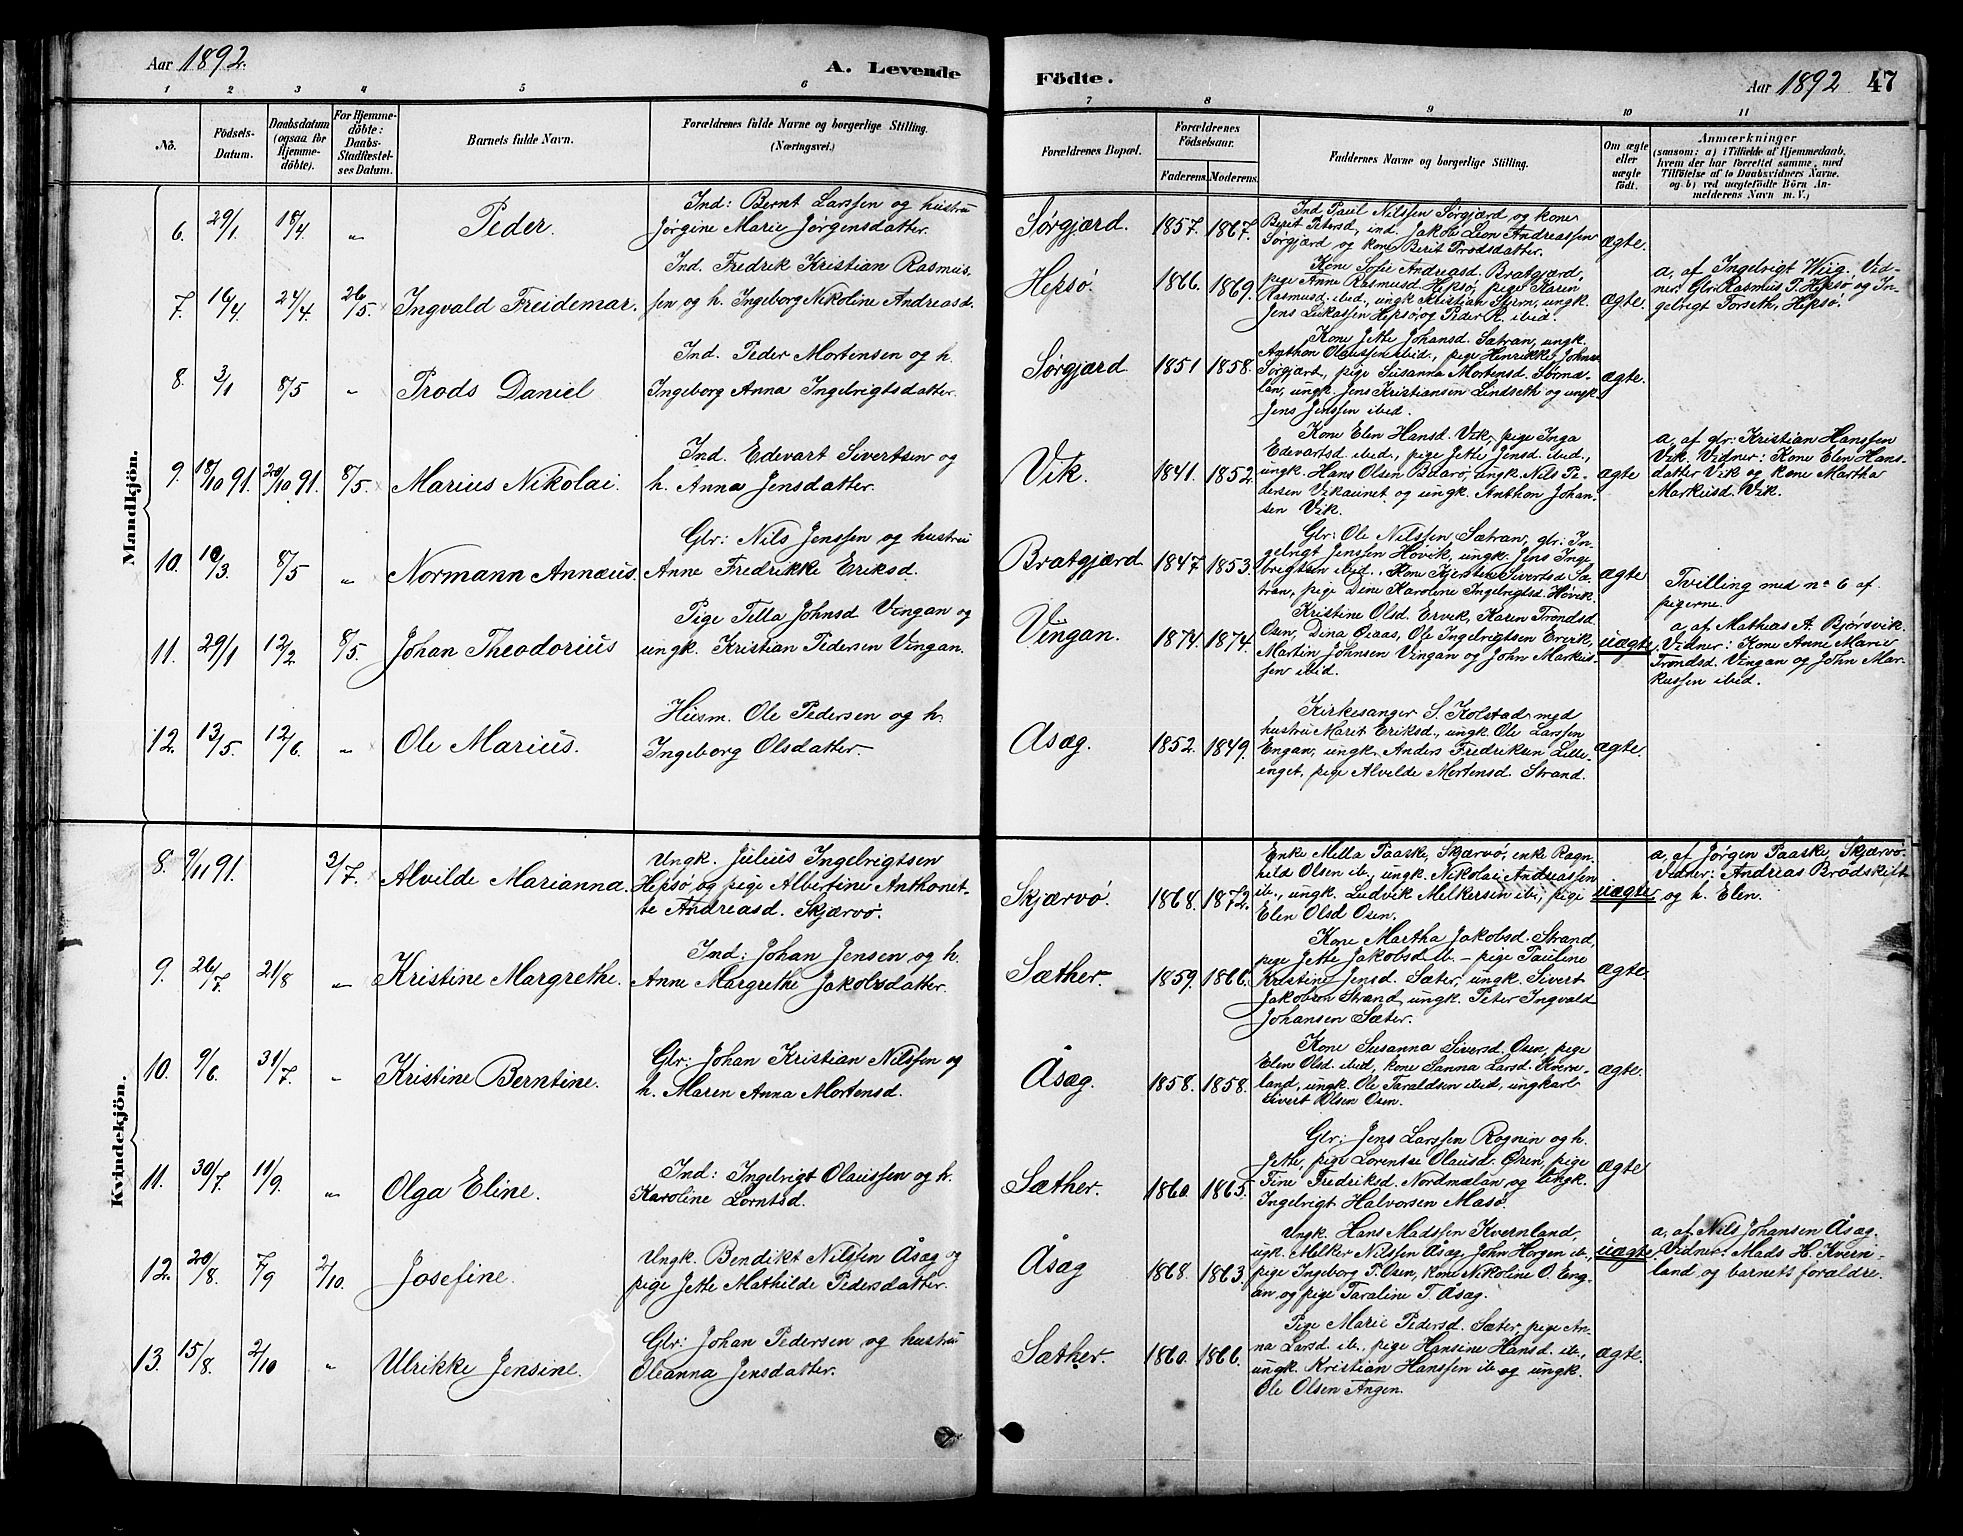 Aar 1892. A. Levende
1 2 3 4 5 6
No. Födsels-Datum. Daabsdatum (ogsaa for Hjemmedöbte). For Hjemmedöbte: Daabs-Stadfæstelses Datum. Barnets fulde Navn. Forældrenes fulde Navne og borgerlige Stilling. (Næringsvei.)
Mandkjön.
6. 29/1 18/4 „ Peder. Ind: Bernt Larssen og hustru
Jørgine Marie Jørgensdatter.
7. 16/4 24/4 26/5 Ingvald Freidemar. Ind. Fredrik Kristian Rasmus-
sen og h. Ingeborg Nikoline Andreasd.
8. 3/1 8/5 „ Trods Daniel Ind. Peder Mortensen og h.
Ingeborg Anna Ingelrigtsdatter.
9. 18/10 91. 20/10 91. 8/5. Marius Nikolai. Ind. Edevart Sivertsen og
h. Anna Jensdatter.
10. 10/3 8/5 „ Normann Annæus. Glr: Nils Jenssen og hustru
Anne Fredrikke Eriksd.
11. 29/1 12/2 8/5. Johan Theodorius Pige Tella Johnsd Vingan og
ungk. Kristian Pedersen Vingan.
12. 13/5. 12/6. „ Ole Marius. Husm. Ole Pedersen og h.
Ingeborg Olsdatter
Kvindekjön.
8. 9/11 91. 3/7. Alvilde Marianna. Ungk. Julius Ingelrigtsen
Hepsø og pige Albertine Anthonet-
te Andreasd. Skjærvø.
9. 26/7 21/8 „ Kristine Margrethe. Ind: Johan Jensen og h.
Anne Margrethe Jakobsdatter.
10. 9/6 31/7. „ Kristine Berntine. Glr: Johan Kristian Nilssen og
h. Maren Anna Mortensd.
11. 30/7 11/9. „ Olga Eline. Ind: Ingelrigt Olaussen og h.
Karoline Lorntsd.
12. 20/8 7/9 2/10. Josefine. Ungk. Bendikt Nilssen Åsæg og
pige Jette Mathilde Pedersdatter.
13. 15/8. 2/10 „ Ulrikke Jensine. Glr: Johan Pedersen og hustru
Oleanna Jensdatter.
Födte. Aar 1892 47
7 8 9 10 11
Forældrenes Bopæl. Forældrenes Födselsaar. Faderens. Moderens. Faddernes Navne og borgerlige Stilling. Om ægte eller uægte födt. Anmærkninger (saasom: a) i Tilfælde af Hjemmedaab, hvem der har forrettet samme, med Tilföielse af to Daabsvidners Navne, og b) ved uægtefödte Börn Anmelderens Navn m.V.)
Sørgjærd. 1857. 1867. Ind Paul Nilssen Sørgjærd og kone
Berit Petersd, ind. Jakob Leon Andreassen
Sørgjærd og kone Berit Trodsdatter. ægte.
Hepsø 1866. 1869. Kone Sofie Andreasd. Bratgjærd,
pige Anne Rasmusd. Hepsø, pige Karen
Rasmusd. ibid., ungk Kristian Stern, ungk.
Jens Lukassen Hepsø, og Peder R. ibid. ægte. a, af Ingelrigt Wiig. Vid-
ner: Glr: Rasmus P. Hepsø og In-
gelrigt Forseth, Hepsø.
Sørgjærd 1851 1858. Kone Jette Johansd. Sætran, ungk.
Anthon Olaussen ibid., pige Henrikke Johns.
Sørgjærd, pige Susanna Mortensd. Sørmæ-
lan, ungk. Jens Kristiansen Lindseth og ungk.
Jens Jenssen ibid. ægte.
Vik. 1841. 1852. Kone Elen Hansd. Vik, pige Inga
Edevartsd ibid., pige Jette Jensd. ibid.,
ungk. Hans Olsen Bessarø, ungk. Nils Pe-
dersen Vikaunet og ungk. Anthon Johan-
sen Vik. ægte a, af glr: Kristian Hanssen
Vik. Vidner: Kone Elen Hans-
datter Vik og kone Martha
Markusd. Vik.
Bratgjærd 1847. 1853. Glr: Ole Nilssen Sætran, glr: In-
gelrigt Jenssen Hovik, ungk. Jens Inge-
brigtsen ibid., Kone Kjersten Sivertsd Sæ-
tran, pige Dine Karoline Ingelrigtsd. Hovik. ægte Tvilling med no 6 af
pigerne.
Vingan. 1874. 1874. Kristine Olsd. Ervik, Karen Trondsd.
Osen, Dina Øiaas, Ole Ingelrigtsen Ervik,
Martin Johnsen Vingan og John Markus-
sen ibid. uægte. a, af Mathias A. Bjørsvik.
Vidner: Kone Anne Marie
Trondsd. Vingan og John Mar-
kussen ibid.
Åsæg. 1852. 1849. Kirkesanger S. Kolstad med
hustru Marit Eriksd., ungk Ole Larssen
Engan, ungk. Anders Fredriksen Lille-
enget, pige Alvilde Mortensd. Strand. ægte.
Skjærvø. 1868. 1872. Enke Mella Paaske, Skjærvø, enke Ragn-
hild Olsen ib., ungk. Nikolai Andreassen
ib., ungk. Ludvik Melkersen ib., pige
Elen Olsd Osen. uægte a, af Jørgen Paaske, Skjærvø.
Vidner: Andreas Brødskift
og h. Elen.
Sæther. 1859. 1866. Kone Martha Jakobsd. Strand,
pige Jette Jakobsd ib. – pige Pauline
Kristine Jensd. Sæter, ungk. Sivert
Jakobsen Strand, ungk. Peter Ingvald
Johansen Sæter. ægte.
Åsæg. 1858. 1858. Kone Susanna Siversd. Osen, pige
Elen Olsd. ibid, kone Sanna Larsd. Kvern-
land, ungk. Ole Taraldsen ibid, ungkarl
Sivert Olsen Osen. ægte.
Sæther. 1860. 1865. Glr: Jens Larssen Rognin og h.
Jette, pige Lorentse Olausd. Øren, pige
Tine Fredriksd. Nordmælan og ungk.
Ingelrigt Halvorsen Masø. ægte
Åsæg 1868. 1863. Ungk. Hans Madssen Kvernland,
ugk. Melker Nilssen Åsæg, John Horgen ib.,
pige Ingeborg P. Osen, kone Nikoline O. Eng-
an, og pige Taraline T. Åsæg. uægte. a, af Nils Johansen Åsæg.
Vidner: Mads H. Kvern-
land, og barnets forældre.
Sæther. 1860. 1866. Pige Marie Pedersd. Sæter, pige An-
na Larsd. ib., pige Hansine Hansd. ib.,
ungk. Kristian Hanssen ib og ungk.
Ole Olsen Angen. ægte.